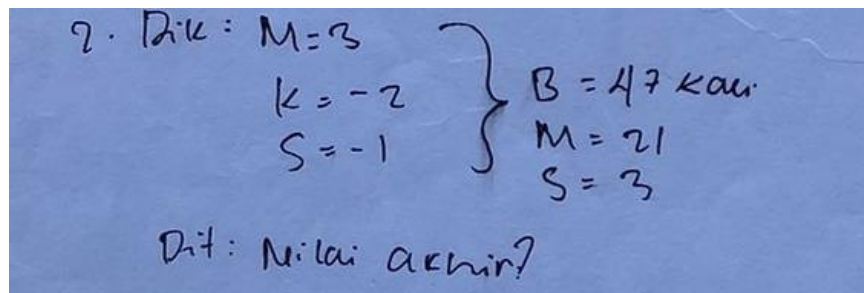 2. Dik : M = 3
K = -2
S = -1
B = 47 kali
M = 21
S = 3
Dit : Nilai akhir?